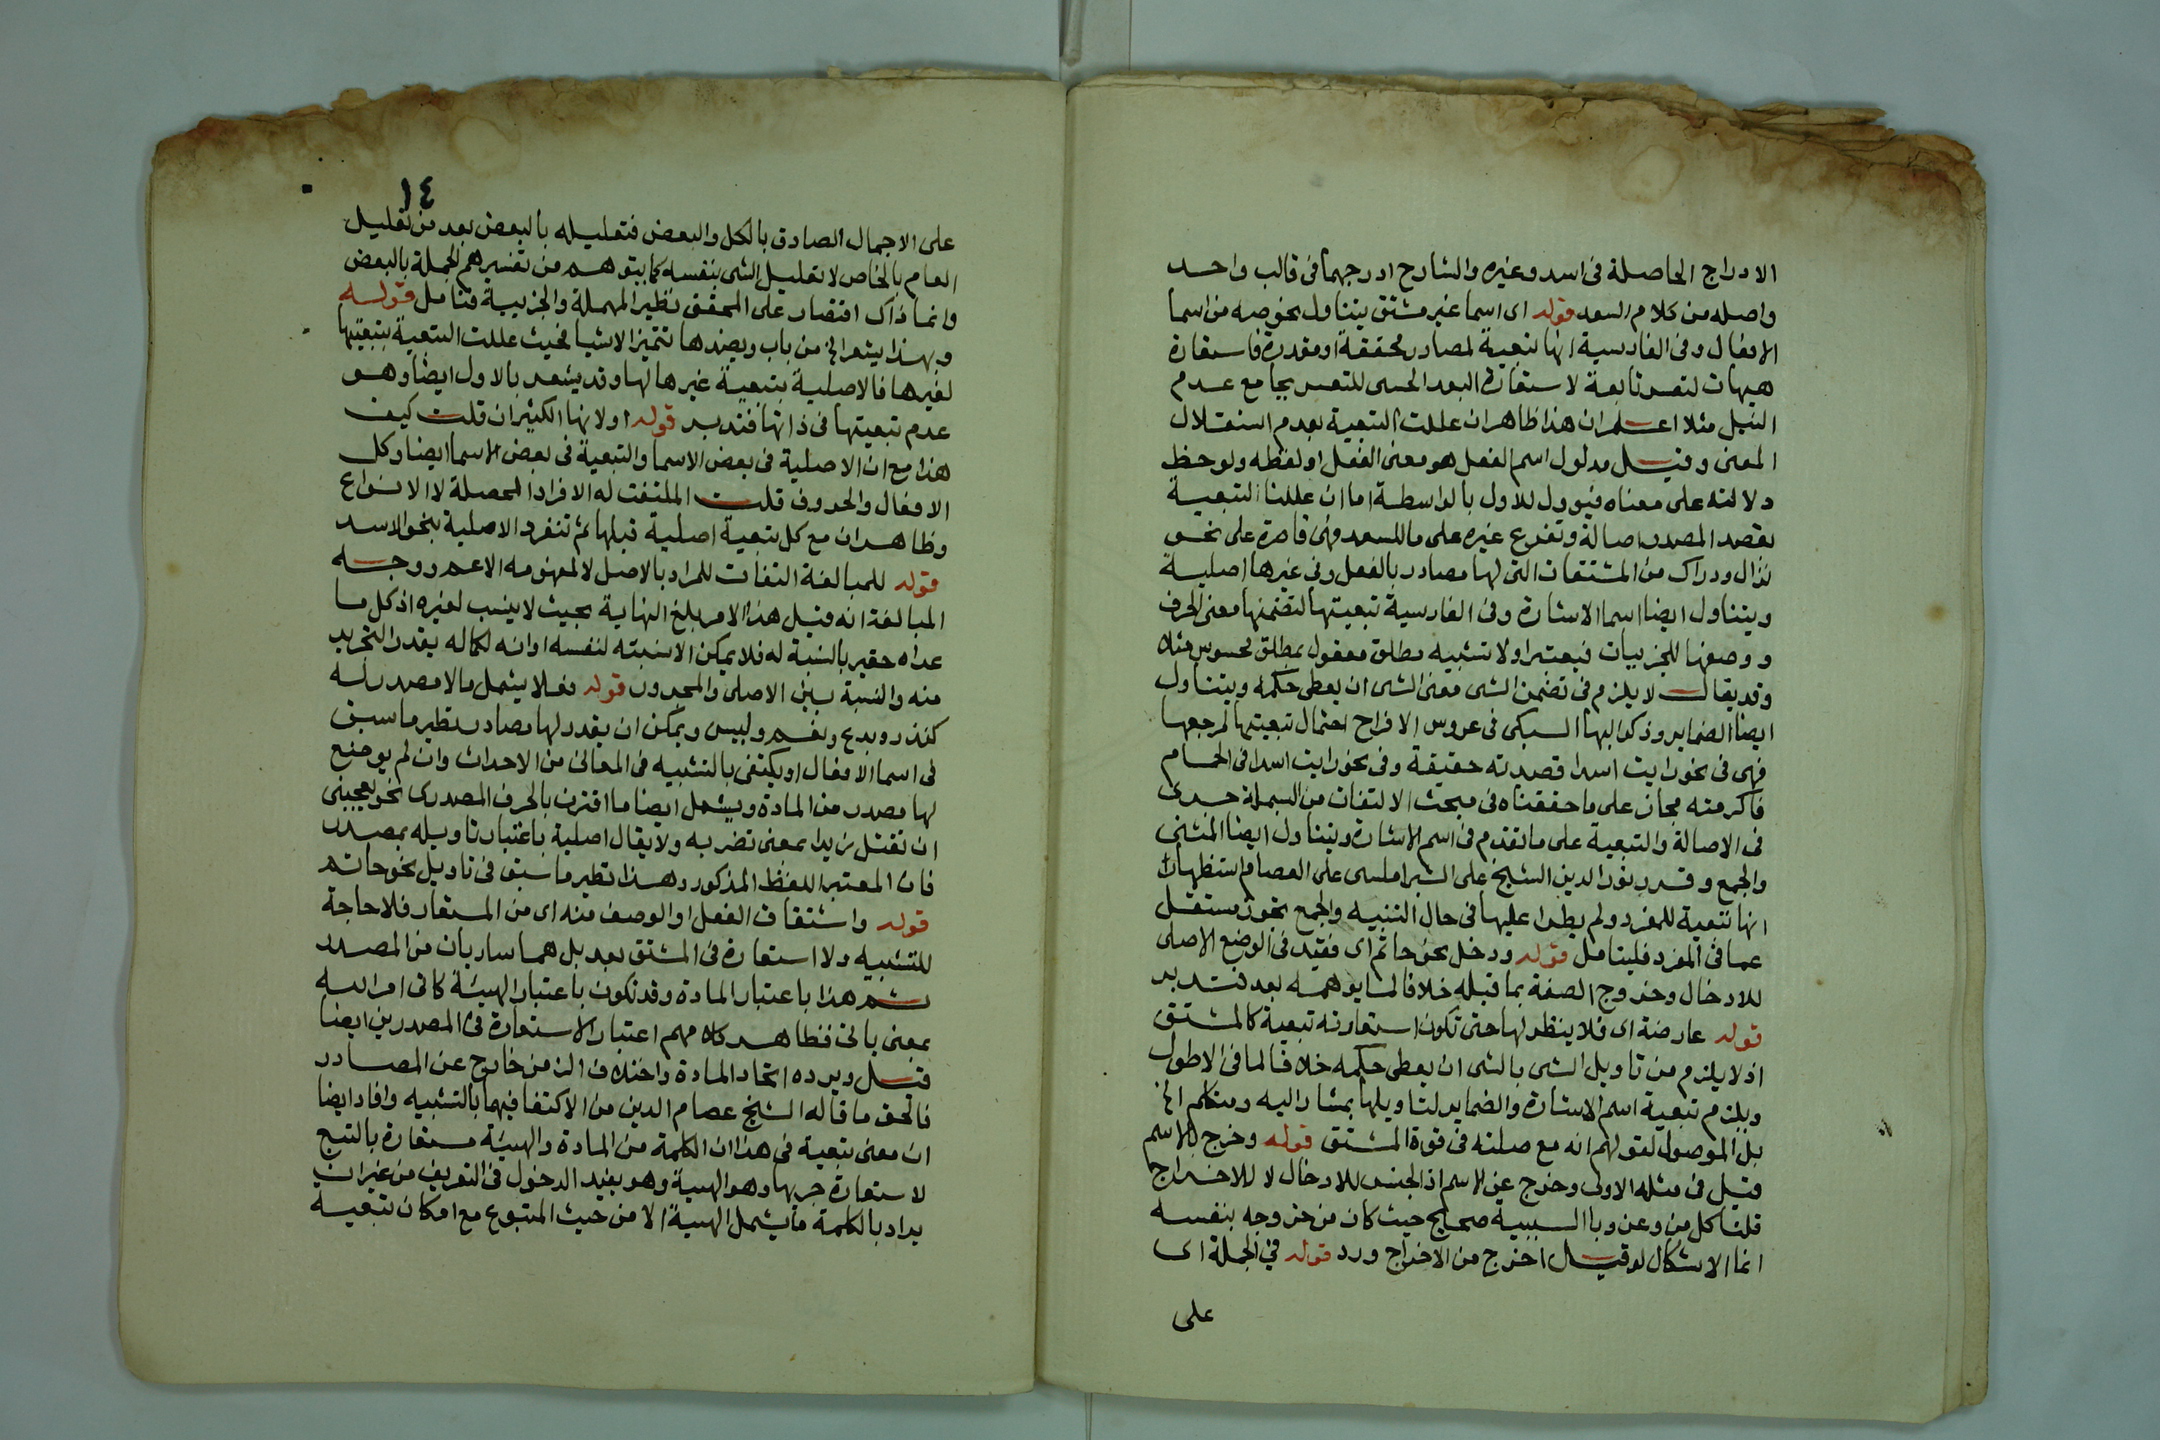 الادراج الحاصلة فى اسد وغيره والشارح ادرجهما فى قالب واحد
واصله من كلام السعد قوله اى اسما غير مشتق يتناول نحو صه من اسما
الافعال وفى الفارسية انها تبعية لمصادر محققة او مقدرة فاستعارة
هيهات لتعسر تابعة لاستعارة البعد الحسى للتعسر بجامع عدم
النيل مثلا اعلم ان هذا ظاهر ان عللت التبعية بعدم استقلال
المعنى وقيل مدلول اسم الفعل هو معنى الفعل او لفظه ولوحظ
دلالته على معناه فيوول للاول بالواسطة اما ان عللنا التبعية
بقصد المصدر اصالة وتفرع غيره على ما للسعد فهى قاصرة على نحو
نزال ودراك من المشتقات التى لها مصادر بالفعل وفى غيرها اصلية
ويتناول ايضا اسما الاشارة وفى الفارسية تبعيتها لتضمنها معنى الحرف
ووضعها للجزييات فيعتبر اولا تشبيه مطلق معقول بمطلق محسوس مثلا
وقد يقال لا يلزم فى تضمن الشى معنى الشى ان يعطى حكمه ويتناول
ايضا الضماير وذكر البها السبكى فى عروس الافراح احتمال تبعيتها لمرجعها
فهى فى نحو رايت اسدا قصدته حقيقة وفى نحو رايت اسدا فى الحمام
فاكرمته مجاز على ما حققناه فى مبحث الالتفات من البسملة جرى
فى الاصالة والتبعية على ما تقدم فى اسم الاشارة ويتناول ايضا المثنى
والجمع وقرر نور الدين الشيخ على الشبراملسى على العصام استظهارا
انها تبعية للمفرد ولم يطرا عليها فى حال التثنيه والجمع تجوز مستقل
عما فى المفرد فليتامل قوله ودخل نحو حاتم اى فقيد فى الوضع الاصلى
للادخال وخروج الصفة بما قبله خلافا لما يوهمه بعد فتدبر
قوله عارضة اى فلا ينظر لها حتى تكون استعارته تبعية كالمشتق
اذ لا يلزم من تاويل الشى بالشى ان يعطى حكمه خلافا لما فى الاطول
ويلزم تبعية اسم الاشارة والضماير لتاويلها بمشار اليه ومتكلم الخ
بل الموصول لقولهم انه مع صلته فى قوة المشتق قوله وخرج بالاسم
قيل فى مثله الاولى وخرج عن الاسم اذ الجنس للادخال لا للاخراج
قلنا كل من وعن وبا السببية صحيح حيث كان من خروجه بنفسه
انما الاشكال لو قيل اخرج من الاخراج ورد قوله فى الجملة اى
على
١٤
على الاجمال الصادق بالكل والبعض فتعليله بالبعض بعد من تعليل
العام بالخاص لا تعليل الشى بنفسه كما يتوهم من تفسيرهم الجملة بالبعض
وانما ذاك اقتصار على المحقق نظير المهملة والجزيية فتامل قوله
وبهذا يشعر الخ من باب وبضدها تتميز الاشيا فحيث عللت التبعية بتبعيتها
لغيرها فالاصلية بتبعية غيرها لها وقد يشعر بالاول ايضا وهو
عدم تبعيتها فى ذاتها فتدبر قوله او لانها الكثير ان قلت كيف
هذا مع ان الاصلية فى بعض الاسما والتبعية فى بعض الاسما ايضا وكل
الافعال والحروف قلت الملتفت له الافراد المحصلة لا الانواع
وظاهر ان مع كل تبعية اصلية قبلها ثم تنفرد الاصلية بنحو الاسد
قوله للمبالغة التفات للمراد بالاصل لا لمفهومه الاعم ووجه
المبالغة انه قيل هذا الامر بلغ النهاية بحيث لا ينسب لغيره اذ كل ما
عداه حقير بالنسبة له فلا يمكن الا نسبته لنفسه او انه لكماله يقدر التجريد
منه والنسبة بين الاصلى والمجرد قوله فعلا يشمل مالا مصدر له
كذر ودع ونعم وليس ويمكن ان يقدر لها مصادر نظير ما سبق
فى اسما الافعال او يكتفى بالتشبيه فى المعانى من الاحداث وان لم يوضع
لها مصدر من المادة ويشمل ايضا ما اقترن بالحرف المصدرى نحو يعجبنى
ان تقتل زيدا بمعنى تضربه ولا يقال اصلية باعتبار تاويله بمصدر
فان المعتبر اللفظ المذكور وهذا نظير ما سبق فى تاويل نحو حاتم
قوله واشتقاق الفعل او الوصف منه اى من المستعار فلا حاجة
للتشبيه ولا استعارة فى المشتق بعد بل هما ساريان من المصدر
ثم هذا باعتبار المادة وقد تكون باعتبار الهيئة كاتى امر الله
بمعنى ياتى فظاهر كلامهم اعتبار الاستعارة فى المصدرين ايضا
قيل ويرده اتحاد المادة واختلاف الزمن خارج عن المصادر
فالحق ما قاله الشيخ عصام الدين من الاكتفا فيها بالتشبيه وافاد ايضا
ان معنى تبعية فى هذا ان الكلمة من المادة والهيئة مستعارة بالتبع
لاستعارة جزيها وهو الهيية وهو بفيد الدخول فى التعريف من غير ان
يراد بالكلمة ما يشمل الهيية الا من حيث المتبوع مع امكان تبعية